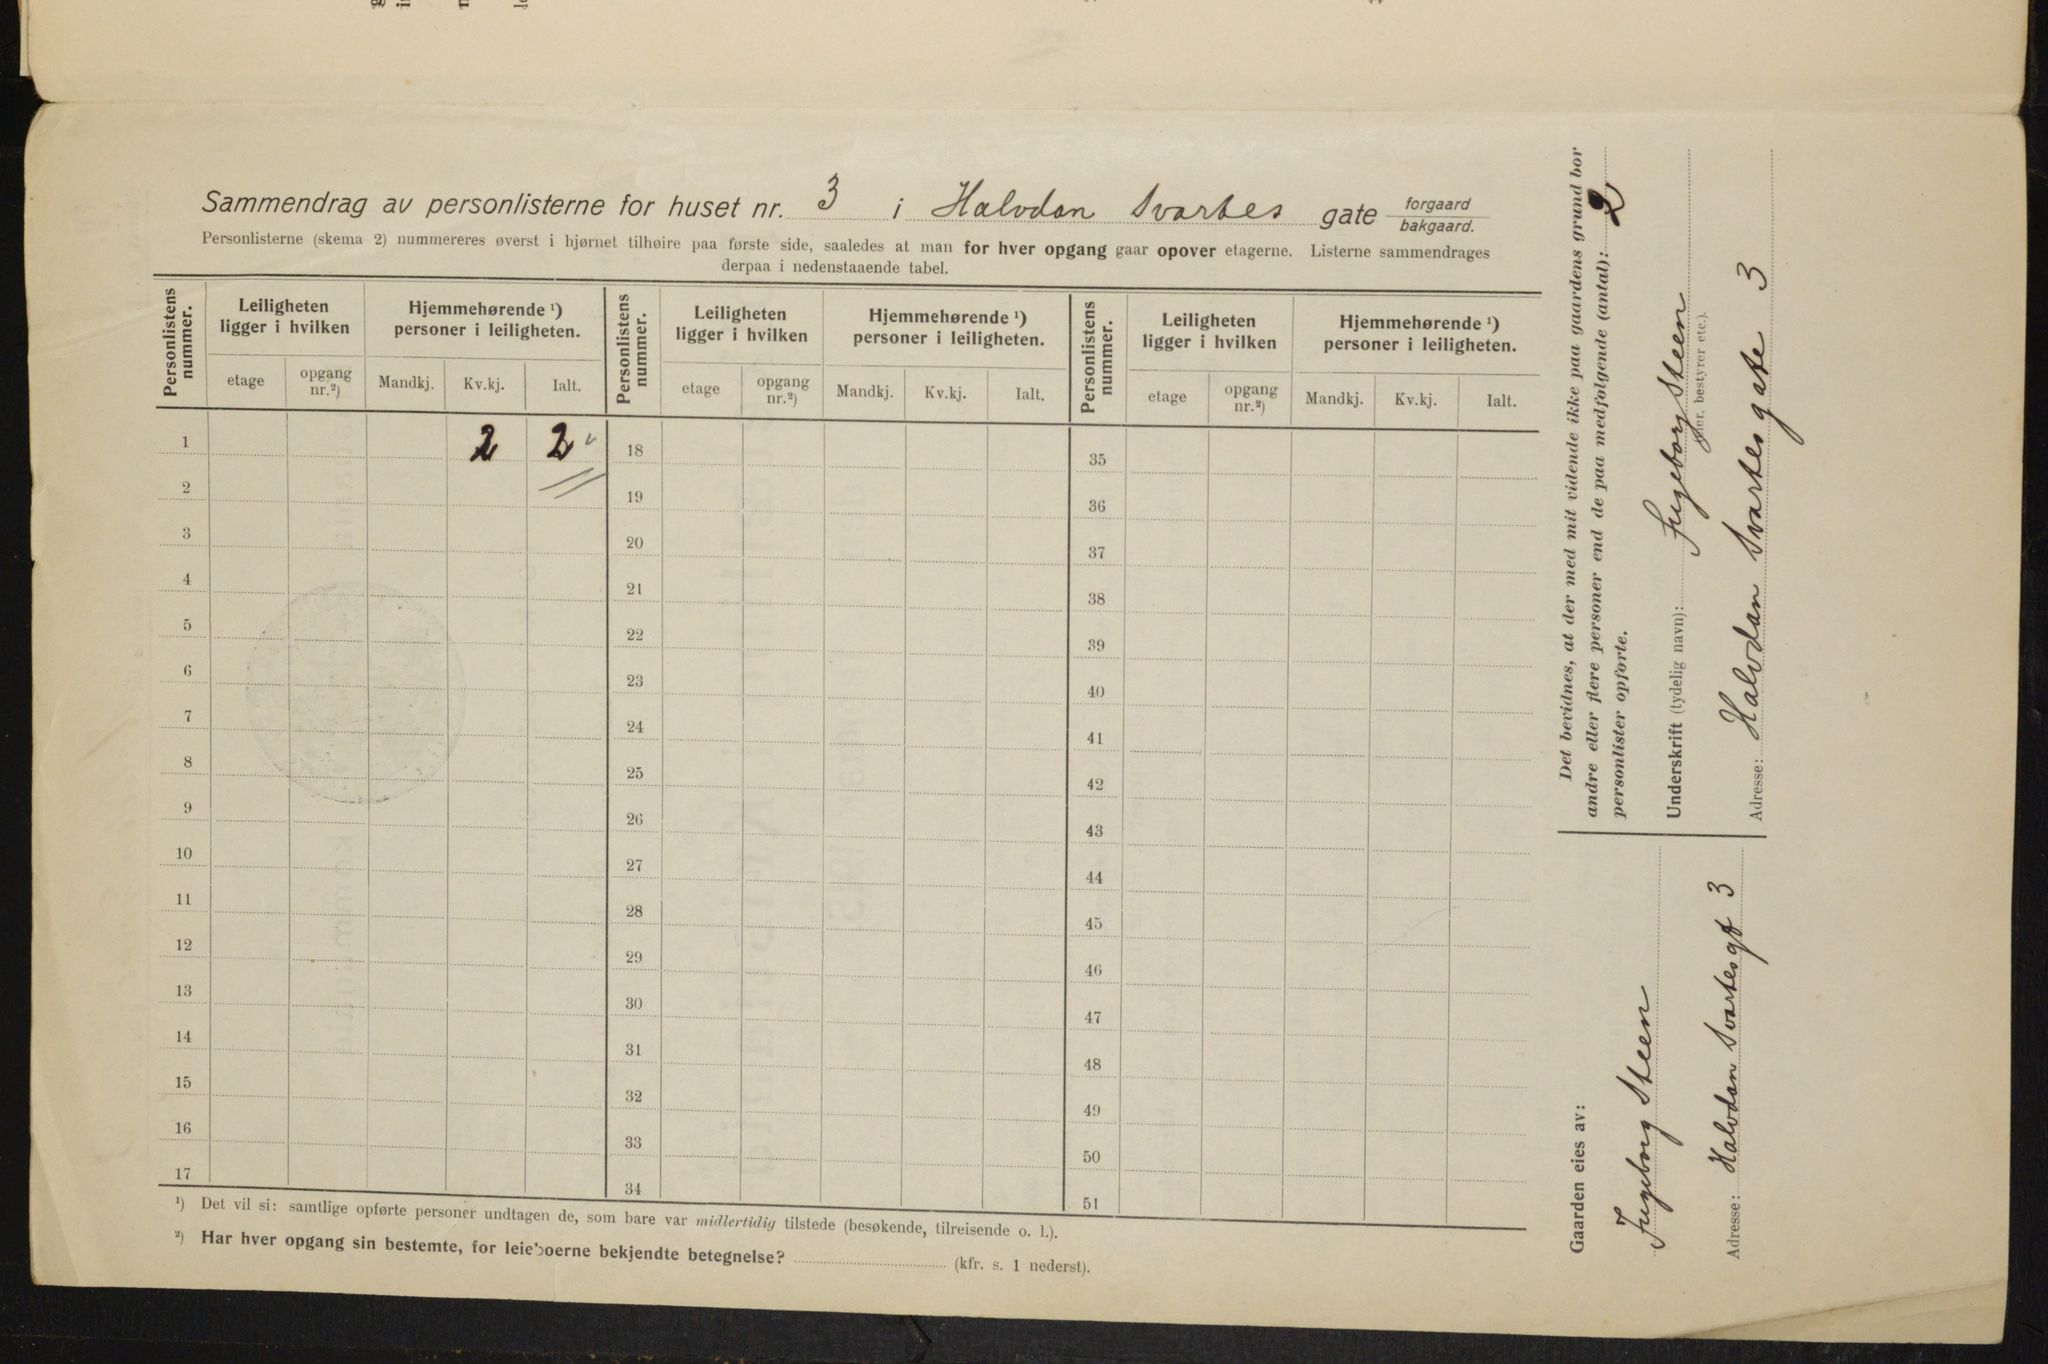 Sammendrag av personlisterne for huset nr. 3 i Halvdan Svartes gate forgaard
bakgaard.
Personlisterne (skema 2) nummereres øverst i hjørnet tilhøire paa første side, saaledes at man for hver opgang gaar opover etagerne. Listerne sammendrages
derpaa i nedenstaaende tabel.
Personlistens nummer.
Leiligheten ligger i hvilken
Hjemmehørende ¹) personer i leiligheten.
Personlistens nummer.
Leiligheten ligger i hvilken
Hjemmehørende ¹) personer i leiligheten.
Personlistens nummer.
Leiligheten ligger i hvilken
Hjemmehørende ¹) personer i leiligheten.
etage opgang nr.²) Mandkj. Kv.kj. Ialt. etage opgang nr.²) Mandkj. Kv.kj. Ialt. etage opgang nr.²) Mandkj. Kv.kj. Ialt.
1 2 2 18 35
2 19 36
3 20 37
4 21 38
5 22 39
6 23 40
7 24 41
8 25 42
9 26 43
10 27 44
11 28 45
12 29 46
13 30 47
14 31 48
15 32 49
16 33 50
17 34 51
¹) Det vil si: samtlige opførte personer undtagen de, som bare var midlertidig tilstede (besøkende, tilreisende o. l.).
²) Har hver opgang sin bestemte, for leieboerne bekjendte betegnelse? (kfr. s. 1 nederst).
Det bevidnes, at der med mit vidende ikke paa gaardens grund bor
andre eller flere personer end de paa medfølgende (antal): 2
personlister opførte.
Underskrift (tydelig navn): Ingeborg Steen
eier, bestyrer etc.).
Adresse: Halvdan Svartes gate 3
Gaarden eies av:
Ingeborg Steen
Adresse: Halvdan Svartes gt 3